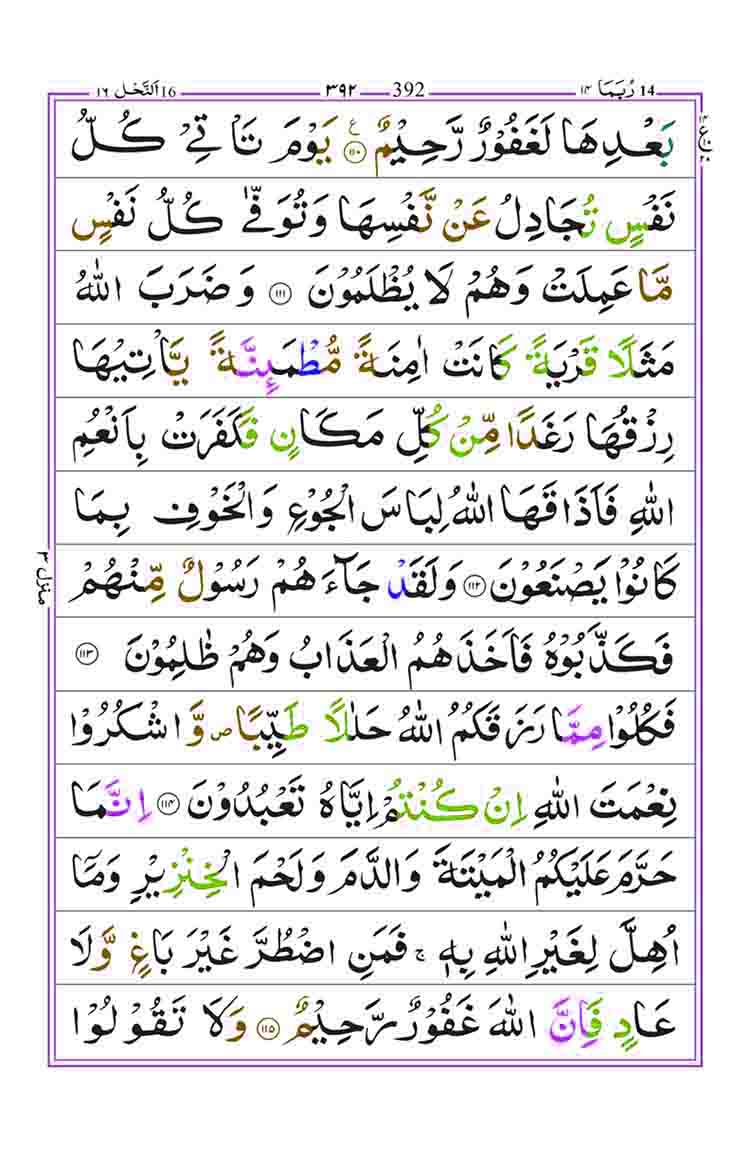 رُبَمَا 14 ١٤ 392 ٣٩٢ اَلنَّحْل 16 ١٦
بَعْدِهَا لَغَفُوْرٌ رَّحِيْمٌ ۝١١٠ ع يَوْمَ تَاْتِيْ كُلُّ
نَفْسٍ تُجَادِلُ عَنْ نَّفْسِهَا وَتُوَفّٰى كُلُّ نَفْسٍ
مَّا عَمِلَتْ وَهُمْ لَا يُظْلَمُوْنَ ۝١١١ وَضَرَبَ اللّٰهُ
مَثَلًا قَرْيَةً كَانَتْ اٰمِنَةً مُّطْمَئِنَّةً يَّاْتِيْهَا
رِزْقُهَا رَغَدًا مِّنْ كُلِّ مَكَانٍ فَكَفَرَتْ بِاَنْعُمِ
اللّٰهِ فَاَذَاقَهَا اللّٰهُ لِبَاسَ الْجُوْعِ وَالْخَوْفِ بِمَا
كَانُوْا يَصْنَعُوْنَ ۝١١٢ وَلَقَدْ جَآءَهُمْ رَسُوْلٌ مِّنْهُمْ
فَكَذَّبُوْهُ فَاَخَذَهُمُ الْعَذَابُ وَهُمْ ظٰلِمُوْنَ ۝١١٣
فَكُلُوْا مِمَّا رَزَقَكُمُ اللّٰهُ حَلٰلًا طَيِّبًا ص وَّاشْكُرُوْا
نِعْمَتَ اللّٰهِ اِنْ كُنْتُمْ اِيَّاهُ تَعْبُدُوْنَ ۝١١٤ اِنَّمَا
حَرَّمَ عَلَيْكُمُ الْمَيْتَةَ وَالدَّمَ وَلَحْمَ الْخِنْزِيْرِ وَمَآ
اُهِلَّ لِغَيْرِ اللّٰهِ بِهٖ ۚ فَمَنِ اضْطُرَّ غَيْرَ بَاغٍ وَّلَا
عَادٍ فَاِنَّ اللّٰهَ غَفُوْرٌ رَّحِيْمٌ ۝١١٥ وَلَا تَقُوْلُوْا
منزل ٣